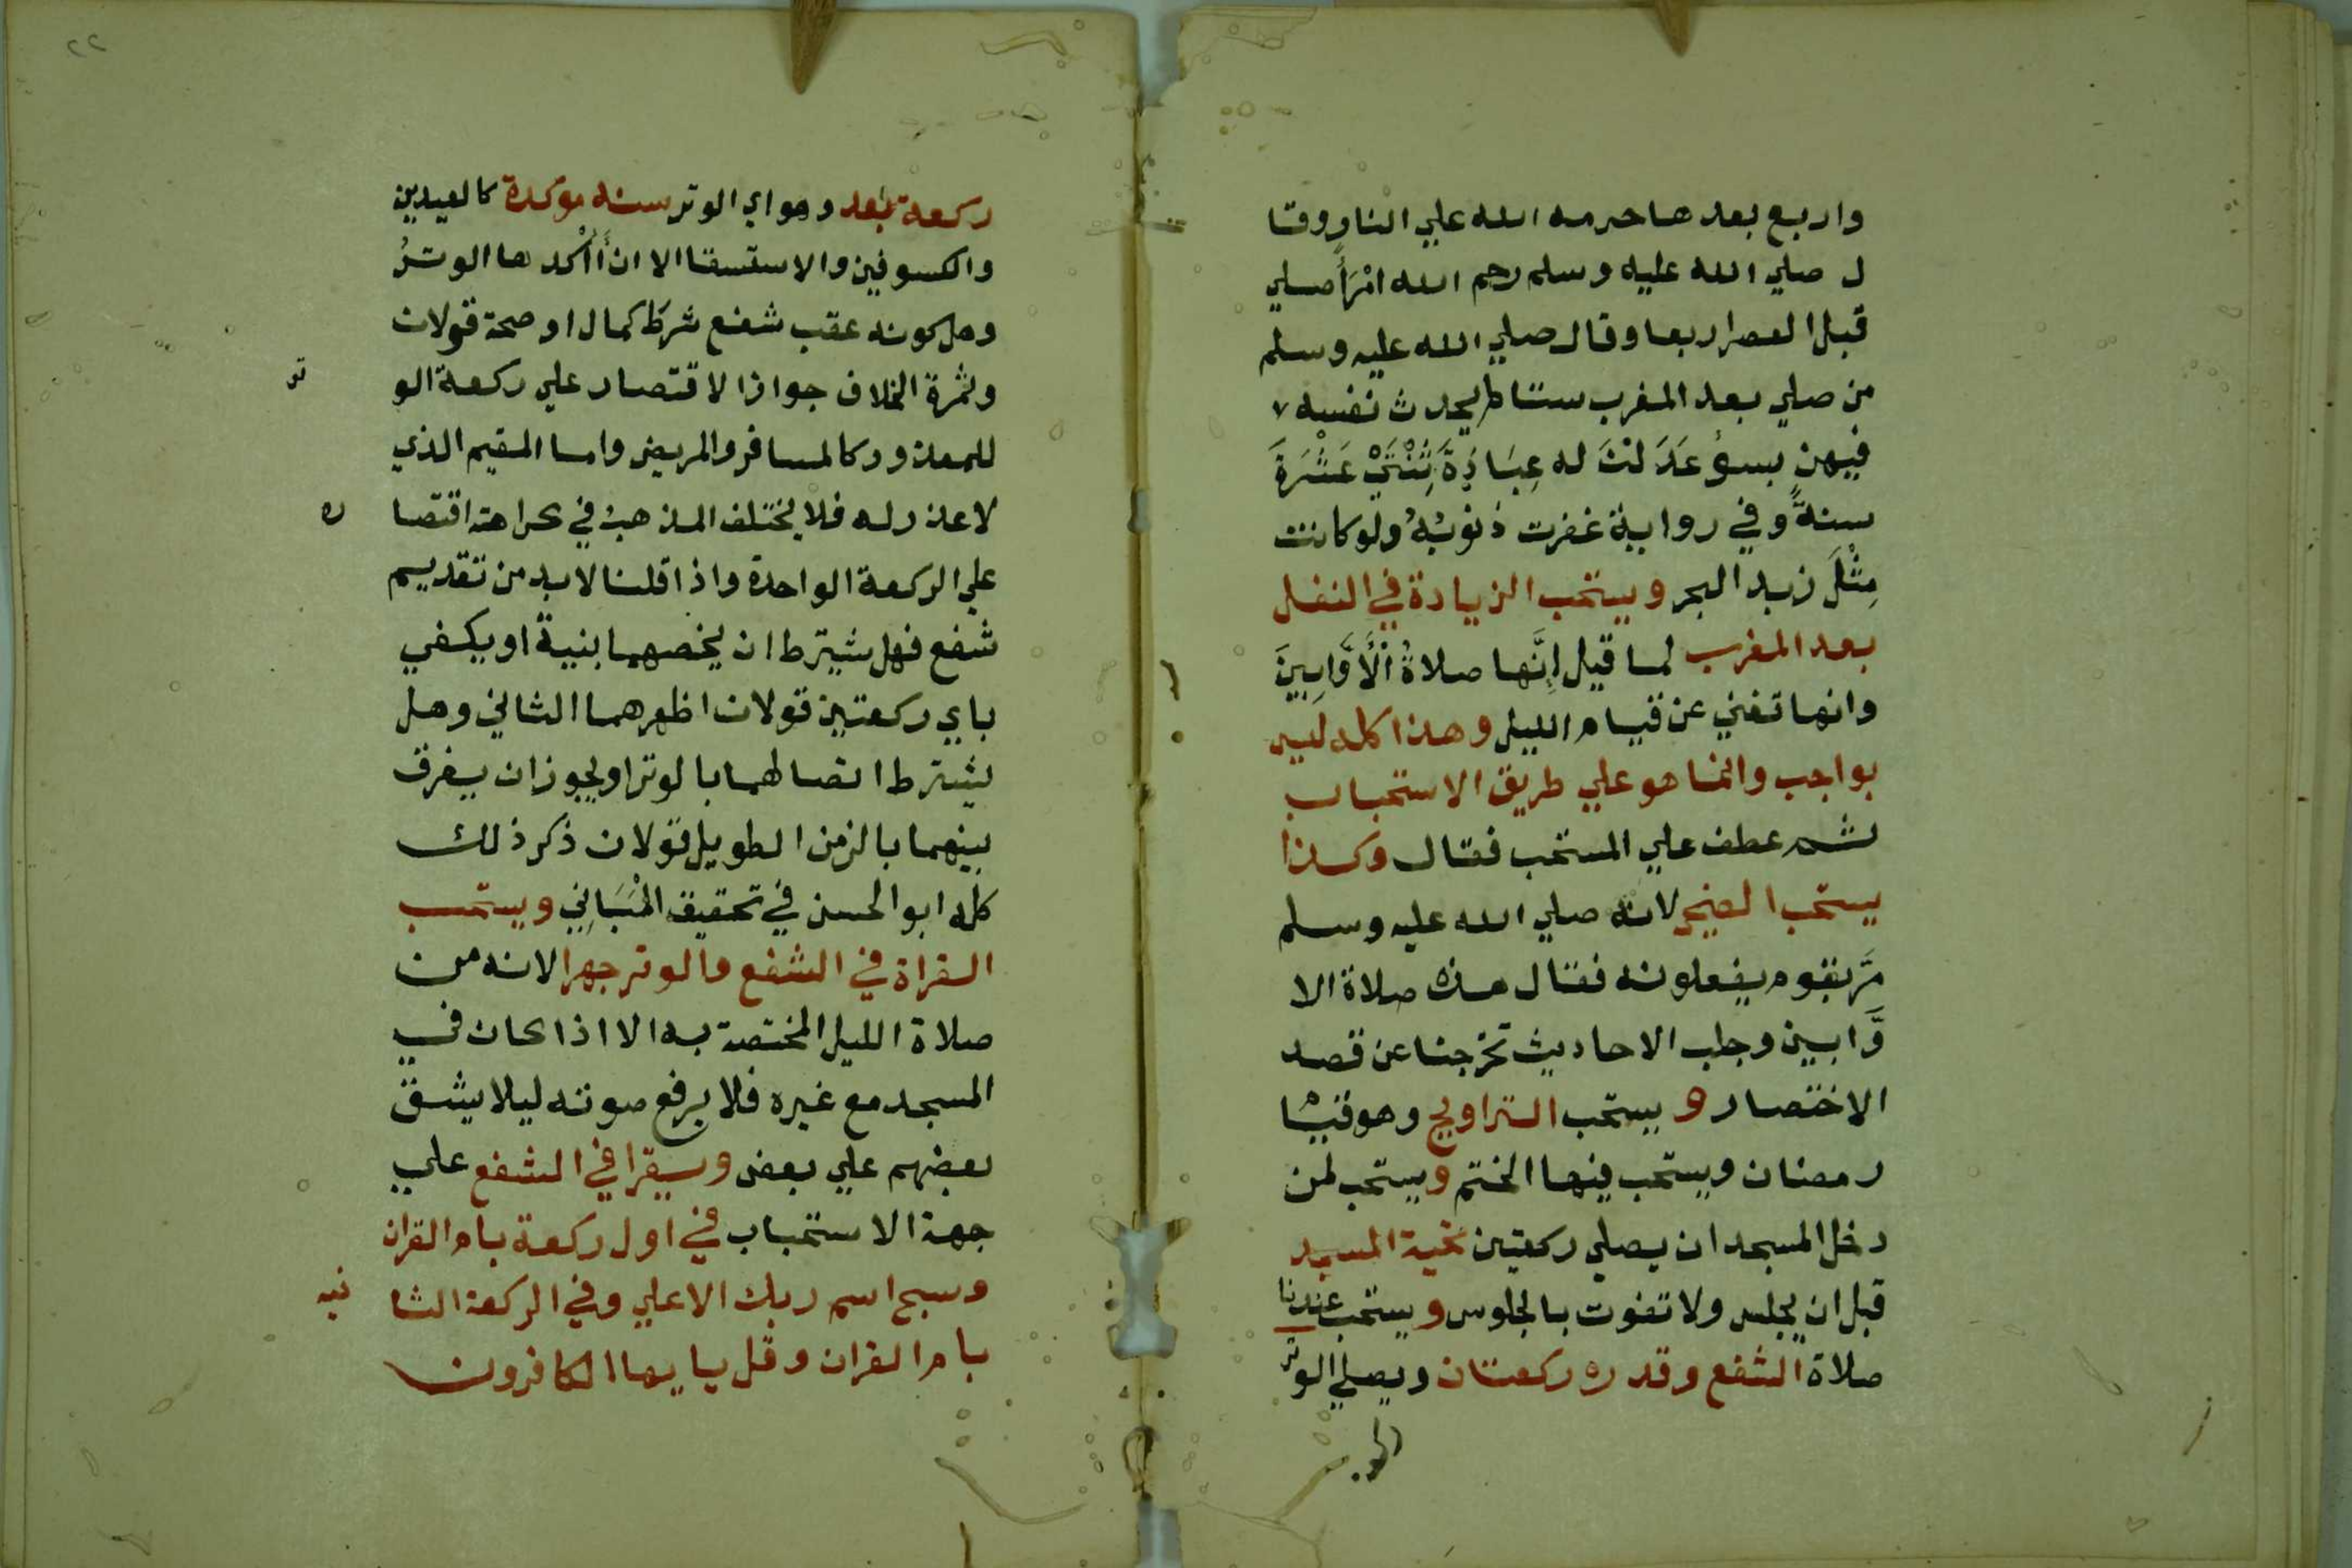 واربع بعدها حرمه الله علي النار وقا
ل صلي الله عليه وسلم رحم الله امْرَأً صلي
قبل العصر اربعا وقال صلي الله عليه وسلم
من صلي بعد المغرب ستا لم يحدث نفسه
فيهن بسوءٍ عَدَلتَ له عِبَادَةَ ثِنْتَيْ عَشْرَةَ
سنةً وفي رواية غفرت ذنوبُهُ ولو كانت
مِثْلَ زبد البحر ويستحب الزيادة في النفل
بعد المغرب لما قيل إِنَّها صلاةُ الْأَوَّابِينَ
وانها تغني عن قيام الليل وهذا كله ليس
بواجب وانما هو علي طريق الاستحباب
ثم عطف علي المستحب فقال وكذا
يستحب الضحي لانه صلي الله عليه وسلم
مَرَّ بقوم يفعلونه فقال هذه صلاة الا
وَّابين وجلب الاحاديث تخرجنا عن قصد
الاختصار و يستحب التراويح وهو قيام
رمضان ويستحب فيها الختم ويستحب لمن
دخل المسجد ان يصلي ركعتين تحية المسجد
قبل ان يجلس ولا تفوت بالجلوس ويستحب عندنا
صلاة الشفع وقدره ركعتان ويصلي الوتر
٢٢
ركعة بعد وهو اي الوتر سنه موكدة كالعيدين
والكسوفين والاستسقا الا ان أٰاكْدها الوترُ
وهل كونه عقب شفع شرط كمال او صحة قولان
وثمرة الخلاف جواز الاقتصار علي ركعة الو
تر
للمعذور كالمسافر والمريض واما المقيم الذي
لا عذر له فلا يختلف المذهبُ في كراهة اقتصا
ره
علي الركعة الواحدة واذا قلنا لا بد من تقديم
شفع فهل يشترط ان يخصهما بنية او يكفي
باي ركعتين قولان اظهرهما الثاني وهل
يشترط اتصالهما بالوتر او يجوز ان يفرق
بينهما بالزمن الطويل قولان ذكر ذلك
كله ابو الحسن في تحقيق المَبَانِي ويستحب
القراة في الشفع والوتر جهرا لانه من
صلاة الليل المختصة به الا اذا كان في
المسجد مع غيره فلا يرفع صوته ليلا يشق
بعضهم علي بعض ويقرا في الشفع علي
جهة الاستحباب في اول ركعة بام القران
وسبح اسم ربك الاعلي وفي الركعة الثا
نيه
بام القران وقل يايها الكافرون